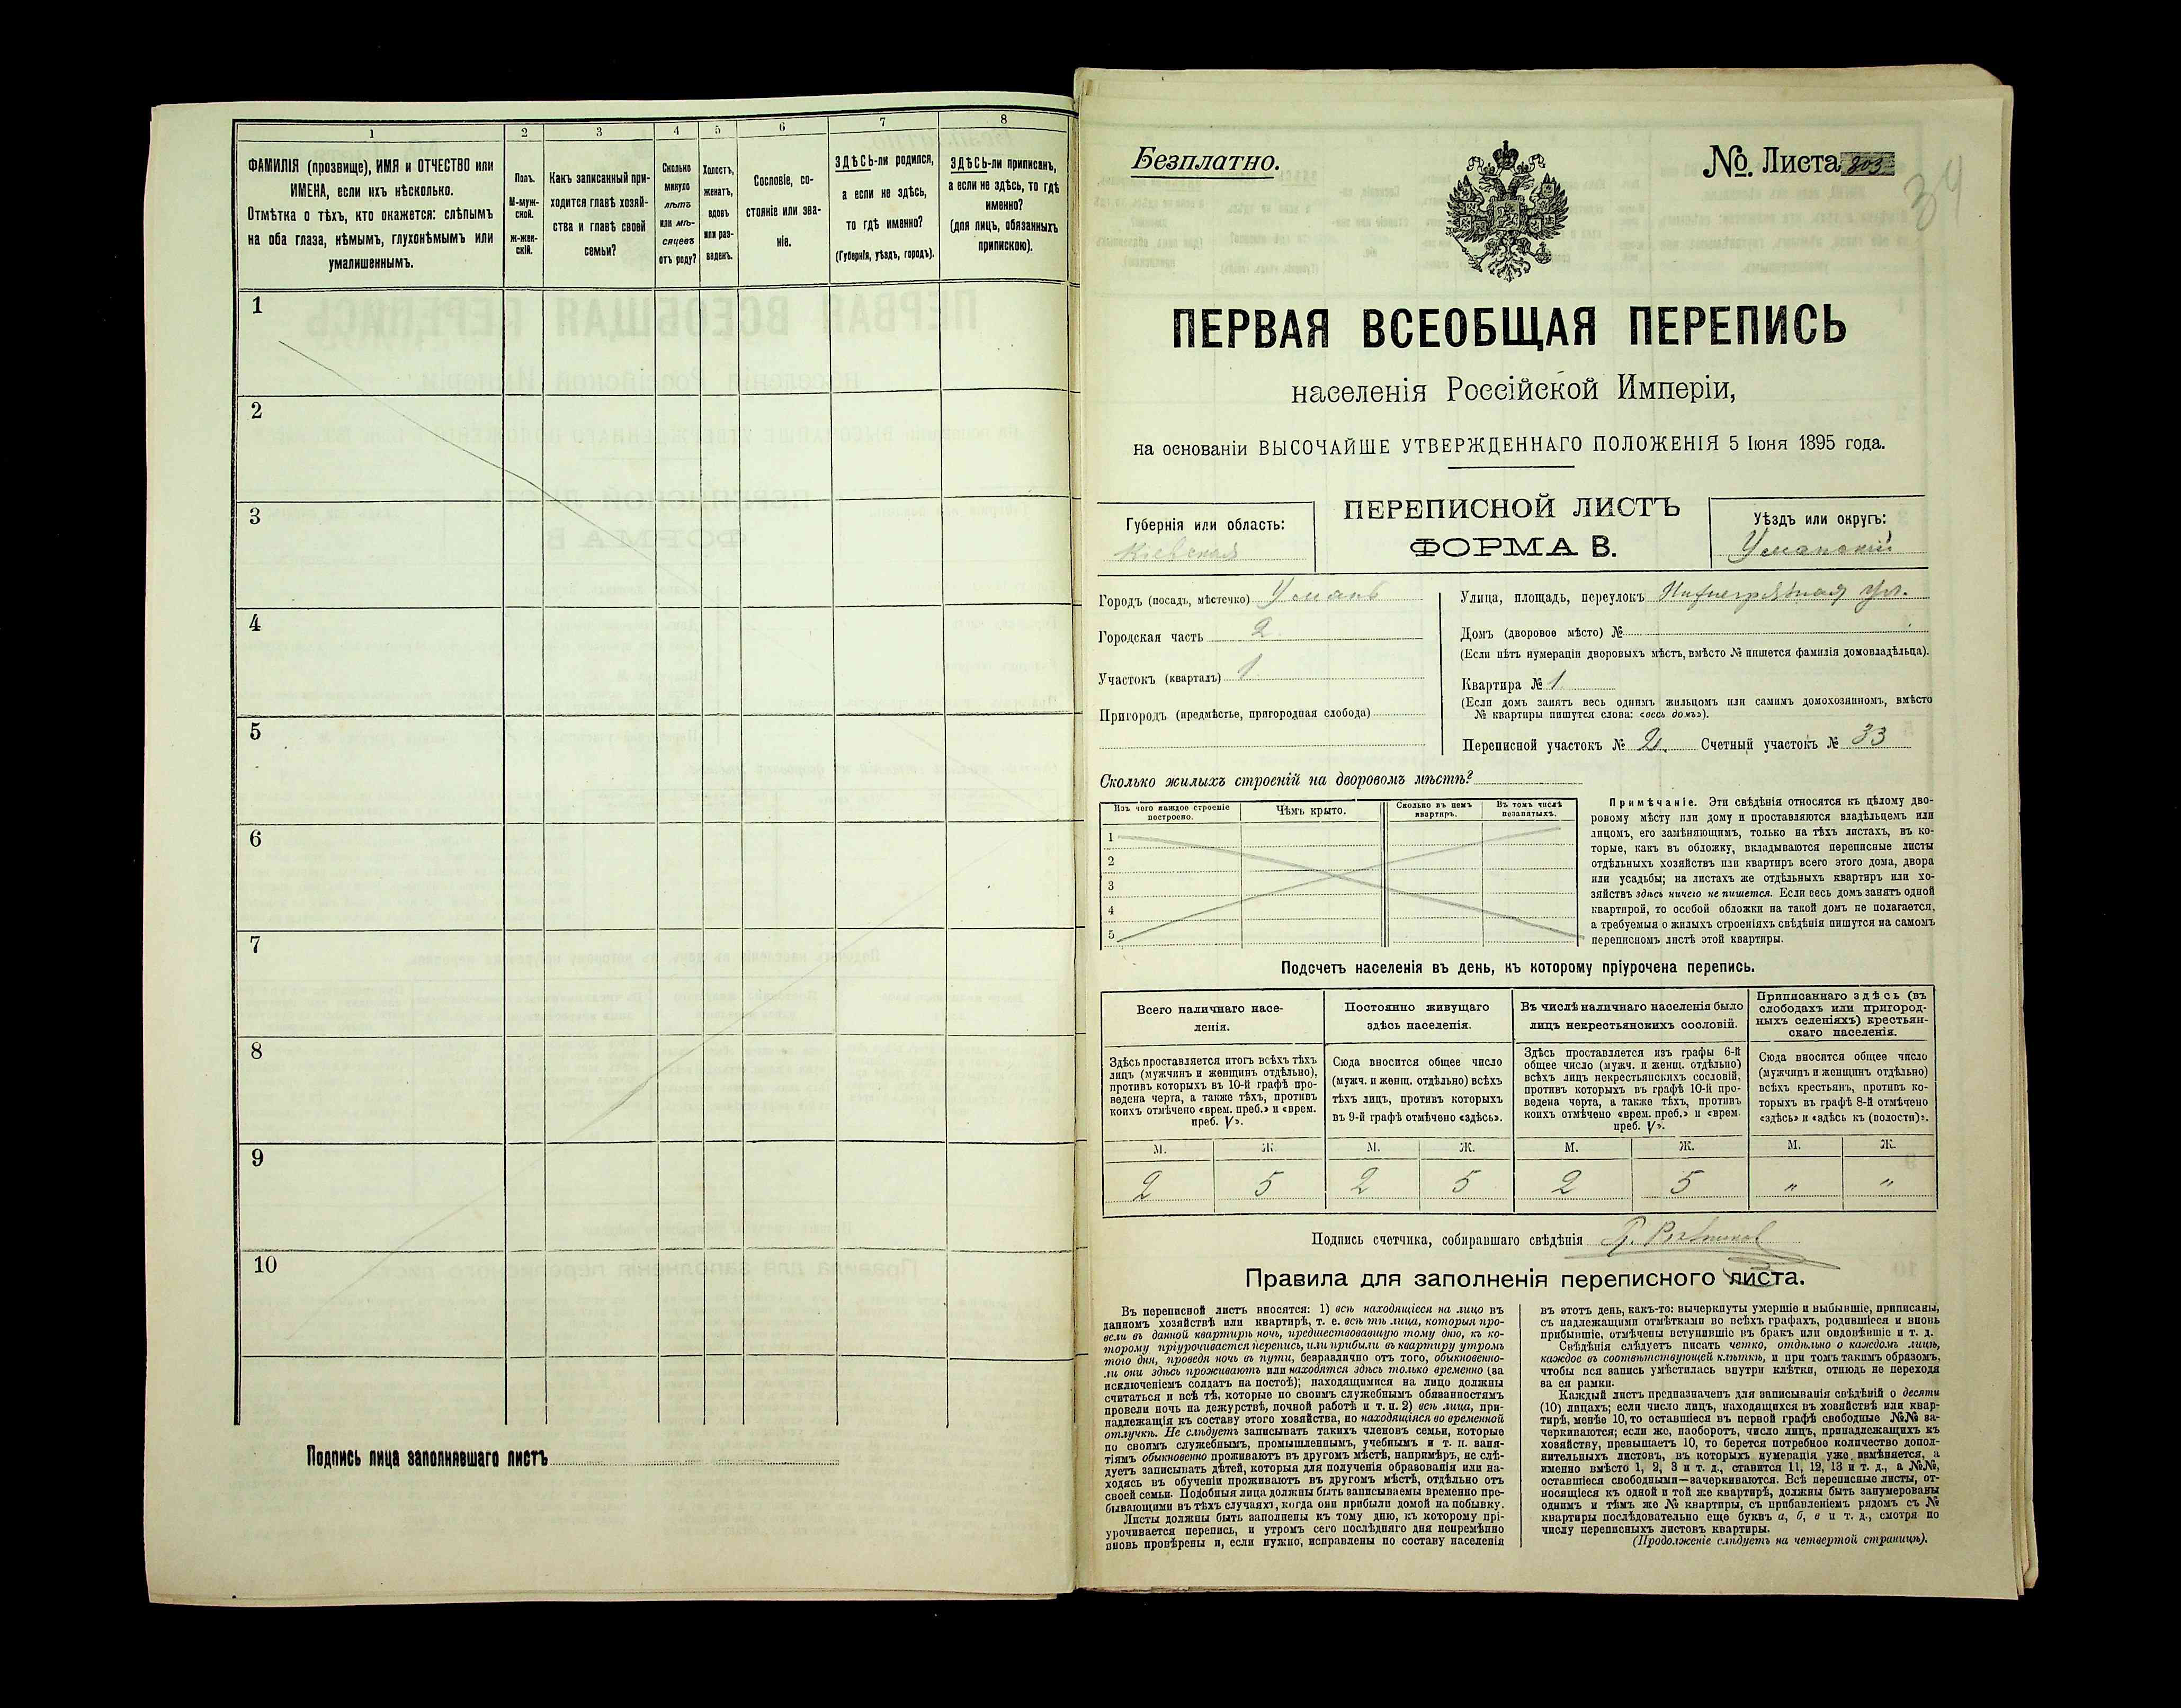 1
2
3
4
5
6
7
8
ФАМИЛІЯ (прозвище), ИМЯ и ОТЧЕСТВО или
ИМЕНА, если ихъ нѣсколько.
Отмѣтка о тѣхъ, кто окажется: слѣпымъ
на оба глаза, нѣмымъ, глухонѣмымъ или
умалишеннымъ.
Полъ.
М-муж-
ской.
Ж-жен-
скій.
Какъ записанный при-
ходится главѣ хозяй-
ства и главѣ своей
семьи?
Сколько
минуло
лѣтъ
или мѣ-
сяцевъ
отъ роду?
Холостъ,
женатъ,
вдовъ
или раз-
веденъ.
Сословіе, со-
стояніе или зва-
ніе.
ЗДѢСЬ-ли родился,
а если не здѣсь,
то гдѣ именно?
(Губернія, уѣздъ, городъ).
ЗДѢСЬ-ли приписанъ,
а если не здѣсь, то гдѣ
именно?
(для лицъ, обязанныхъ
припискою).
1
2
3
4
5
6
7
8
9
10
Подпись лица заполнявшаго листъ
Безплатно.
№ Листа 203
34
ПЕРВАЯ ВСЕОБЩАЯ ПЕРЕПИСЬ
населенія Россійской Имперіи,
на основаніи ВЫСОЧАЙШЕ УТВЕРЖДЕННАГО ПОЛОЖЕНІЯ 5 Іюня 1895 года.
Губернія или область:
Кіевская
ПЕРЕПИСНОЙ ЛИСТЪ
ФОРМА В.
Уѣздъ или округъ:
Уманскій
Городъ (посадъ, мѣстечко) Умань
Городская часть 2
Участокъ (кварталъ) 1
Пригородъ (предмѣстье, пригородная слобода)
Улица, площадь, переулокъ ул.
Домъ (дворовое мѣсто) №
(Если нѣтъ нумераціи дворовыхъ мѣстъ, вмѣсто № пишется фамилія домовладѣльца).
Квартира № 1
(Если домъ занятъ весь однимъ жильцомъ или самимъ домохозяиномъ, вмѣсто
№ квартиры пишутся слова: «весь домъ»).
Переписной участокъ № 2 Счетный участокъ № 33
Сколько жилыхъ строеній на дворовомъ мѣстѣ?
Изъ чего каждое строеніе
построено.
Чѣмъ крыто.
Сколько въ немъ
квартиръ.
Въ томъ числѣ
незанятыхъ.
1
2
3
4
5
Примѣчаніе. Эти свѣдѣнія относятся къ цѣлому дво-
ровому мѣсту или дому и проставляются владѣльцемъ или
лицомъ, его замѣняющимъ, только на тѣхъ листахъ, въ ко-
торые, какъ въ обложку, вкладываются переписные листы
отдѣльныхъ хозяйствъ или квартиръ всего этого дома, двора
или усадьбы; на листахъ же отдѣльныхъ квартиръ или хо-
зяйствъ здѣсь ничего не пишется. Если весь домъ занятъ одной
квартирой, то особой обложки на такой домъ не полагается,
а требуемыя о жилыхъ строеніяхъ свѣдѣнія пишутся на самомъ
переписномъ листѣ этой квартиры.
Подсчетъ населенія въ день, къ которому пріурочена перепись.
Всего наличнаго насе-
ленія.
Постоянно живущаго
здѣсь населенія.
Въ числѣ наличнаго населенія было
лицъ некрестьянскихъ сословій.
Приписаннаго здѣсь (въ
слободахъ или пригород-
ныхъ селеніяхъ) крестьян-
скаго населенія.
Здѣсь проставляется итогъ всѣхъ тѣхъ
лицъ (мужчинъ и женщинъ отдѣльно),
противъ которыхъ въ 10-й графѣ про-
ведена черта, а также тѣхъ, противъ
коихъ отмѣчено «врем. преб.» и «врем.
преб. V».
Сюда вносится общее число
(мужч. и женщ. отдѣльно) всѣхъ
тѣхъ лицъ, противъ которыхъ
въ 9-й графѣ отмѣчено «здѣсь».
Здѣсь проставляется изъ графы 6-й
общее число (мужч. и женщ. отдѣльно)
всѣхъ лицъ некрестьянскихъ сословій,
противъ которыхъ въ графѣ 10-й про-
ведена черта, а также тѣхъ, противъ
коихъ отмѣчено «врем. преб.» и «врем.
преб. V».
Сюда вносится общее число
(мужчинъ и женщинъ отдѣльно)
всѣхъ крестьянъ, противъ ко-
торыхъ въ графѣ 8-й отмѣчено
«здѣсь» и «здѣсь къ (волости)».
М. Ж. М. Ж. М. Ж. М. Ж.
2 5 2 5 2 5 " "
Подпись счетчика, собиравшаго свѣдѣнія
Правила для заполненія переписного листа.
Въ переписной листъ вносятся: 1) всѣ находящіеся на лицо въ
данномъ хозяйствѣ или квартирѣ, т. е. всѣ тѣ лица, которыя про-
вели въ данной квартирѣ ночь, предшествовавшую тому дню, къ ко-
торому пріурочивается перепись, или прибыли въ квартиру утромъ
того дня, проведя ночь въ пути, безразлично отъ того, обыкновенно-
ли они здѣсь проживаютъ или находятся здѣсь только временно (за
исключеніемъ солдатъ на постоѣ); находящимися на лицо должны
считаться и всѣ тѣ, которые по своимъ служебнымъ обязанностямъ
провели ночь на дежурствѣ, ночной работѣ и т. п. 2) всѣ лица, при-
надлежащія къ составу этого хозяйства, но находящіяся во временной
отлучкѣ. Не слѣдуетъ записывать такихъ членовъ семьи, которые
по своимъ служебнымъ, промышленнымъ, учебнымъ и т. п. заня-
тіямъ обыкновенно проживаютъ въ другомъ мѣстѣ, напримѣръ, не слѣ-
дуетъ записывать дѣтей, которыя для полученія образованія или на-
ходясь въ обученіи проживаютъ въ другомъ мѣстѣ, отдѣльно отъ
своей семьи. Подобныя лица должны быть записываемы временно пре-
бывающими въ тѣхъ случаяхъ, когда они прибыли домой на побывку.
Листы должны быть заполнены къ тому дню, къ которому прі-
урочивается перепись, и утромъ сего послѣдняго дня непремѣнно
вновь провѣрены и, если нужно, исправлены по составу населенія
въ этотъ день, какъ-то: вычеркнуты умершіе и выбывшіе, приписаны,
съ надлежащими отмѣтками во всѣхъ графахъ, родившіеся и вновь
прибывшіе, отмѣчены вступившіе въ бракъ или овдовѣвшіе и т. д.
Свѣдѣнія слѣдуетъ писать четко, отдѣльно о каждомъ лицѣ,
каждое въ соотвѣтствующей клѣткѣ, и при томъ такимъ образомъ,
чтобы вся запись умѣстилась внутри клѣтки, отнюдь не переходя
за ея рамки.
Каждый листъ предназначенъ для записыванія свѣдѣній о десяти
(10) лицахъ; если число лицъ, находящихся въ хозяйствѣ или квар-
тирѣ, менѣе 10, то оставшіеся въ первой графѣ свободные №№ за-
черкиваются; если же, наоборотъ, число лицъ, принадлежащихъ къ
хозяйству, превышаетъ 10, то берется потребное количество допол-
нительныхъ листовъ, въ которыхъ нумерація уже измѣняется, а
именно вмѣсто 1, 2, 3 и т. д., ставится 11, 12, 13 и т. д., а №№,
оставшіеся свободными—зачеркиваются. Всѣ переписные листы, от-
носящіеся къ одной и той же квартирѣ, должны быть занумерованы
однимъ и тѣмъ же № квартиры, съ прибавленіемъ рядомъ съ №
квартиры послѣдовательно еще буквъ а, б, в и т. д., смотря по
числу переписныхъ листовъ квартиры.
(Продолженіе слѣдуетъ на четвертой страницѣ).